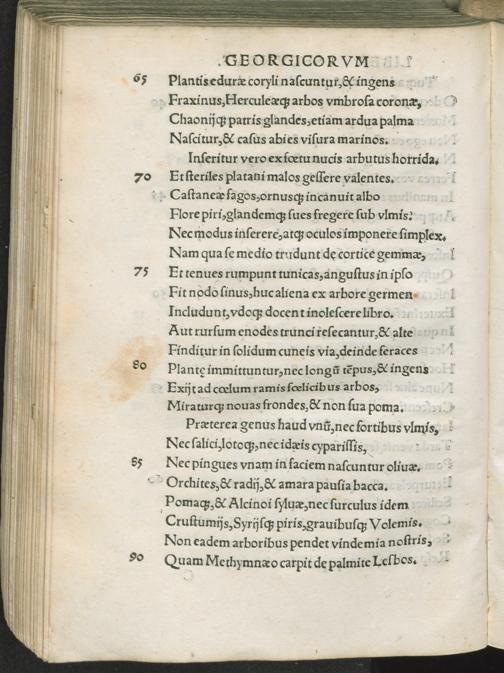 GEORGICORVM
65 Plantis eduræ coryli nascuntur, & ingens
Fraxinus, Herculeæq; arbos vmbrosa coronæ,
Chaonijq; patris glandes, etiam ardua palma
Nascitur, & casus abies visura marinos.
Inseritur vero ex fœtu nucis arbutus horrida.
70 Et steriles platani malos gessere valentes.
Castaneæ fagos, ornusq; incanuit albo
Flore piri, glandemq; sues fregere sub vlmis.
Nec modus inserere, atq; oculos imponere simplex.
Nam qua se medio trudunt de cortice gemmæ,
75 Et tenues rumpunt tunicas, angustus in ipso
Fit nodo sinus, huc aliena ex arbore germen
Includunt, vdoq; docent inolescere libro.
Aut rursum enodes trunci resecantur, & alte
Finditur in solidum cuneis via, deinde feraces
80 Plantę immittuntur, nec longũ tẽpus, & ingens
Exijt ad cœlum ramis fœlicibus arbos,
Miraturq; nouas frondes, & non sua poma.
Præterea genus haud vnũ, nec fortibus vlmis,
Nec salici, lotoq;, nec idæis cyparissis,
85 Nec pingues vnam in faciem nascuntur oliuæ.
Orchites, & radij, & amara pausia bacca.
Pomaq;, & Alcinoi syluæ, nec surculus idem
Crustumijs, Syrijsq; piris, grauibusq; Volemis.
Non eadem arboribus pendet vindemia nostris,
90 Quam Methymnæo carpit de palmite Lesbos.